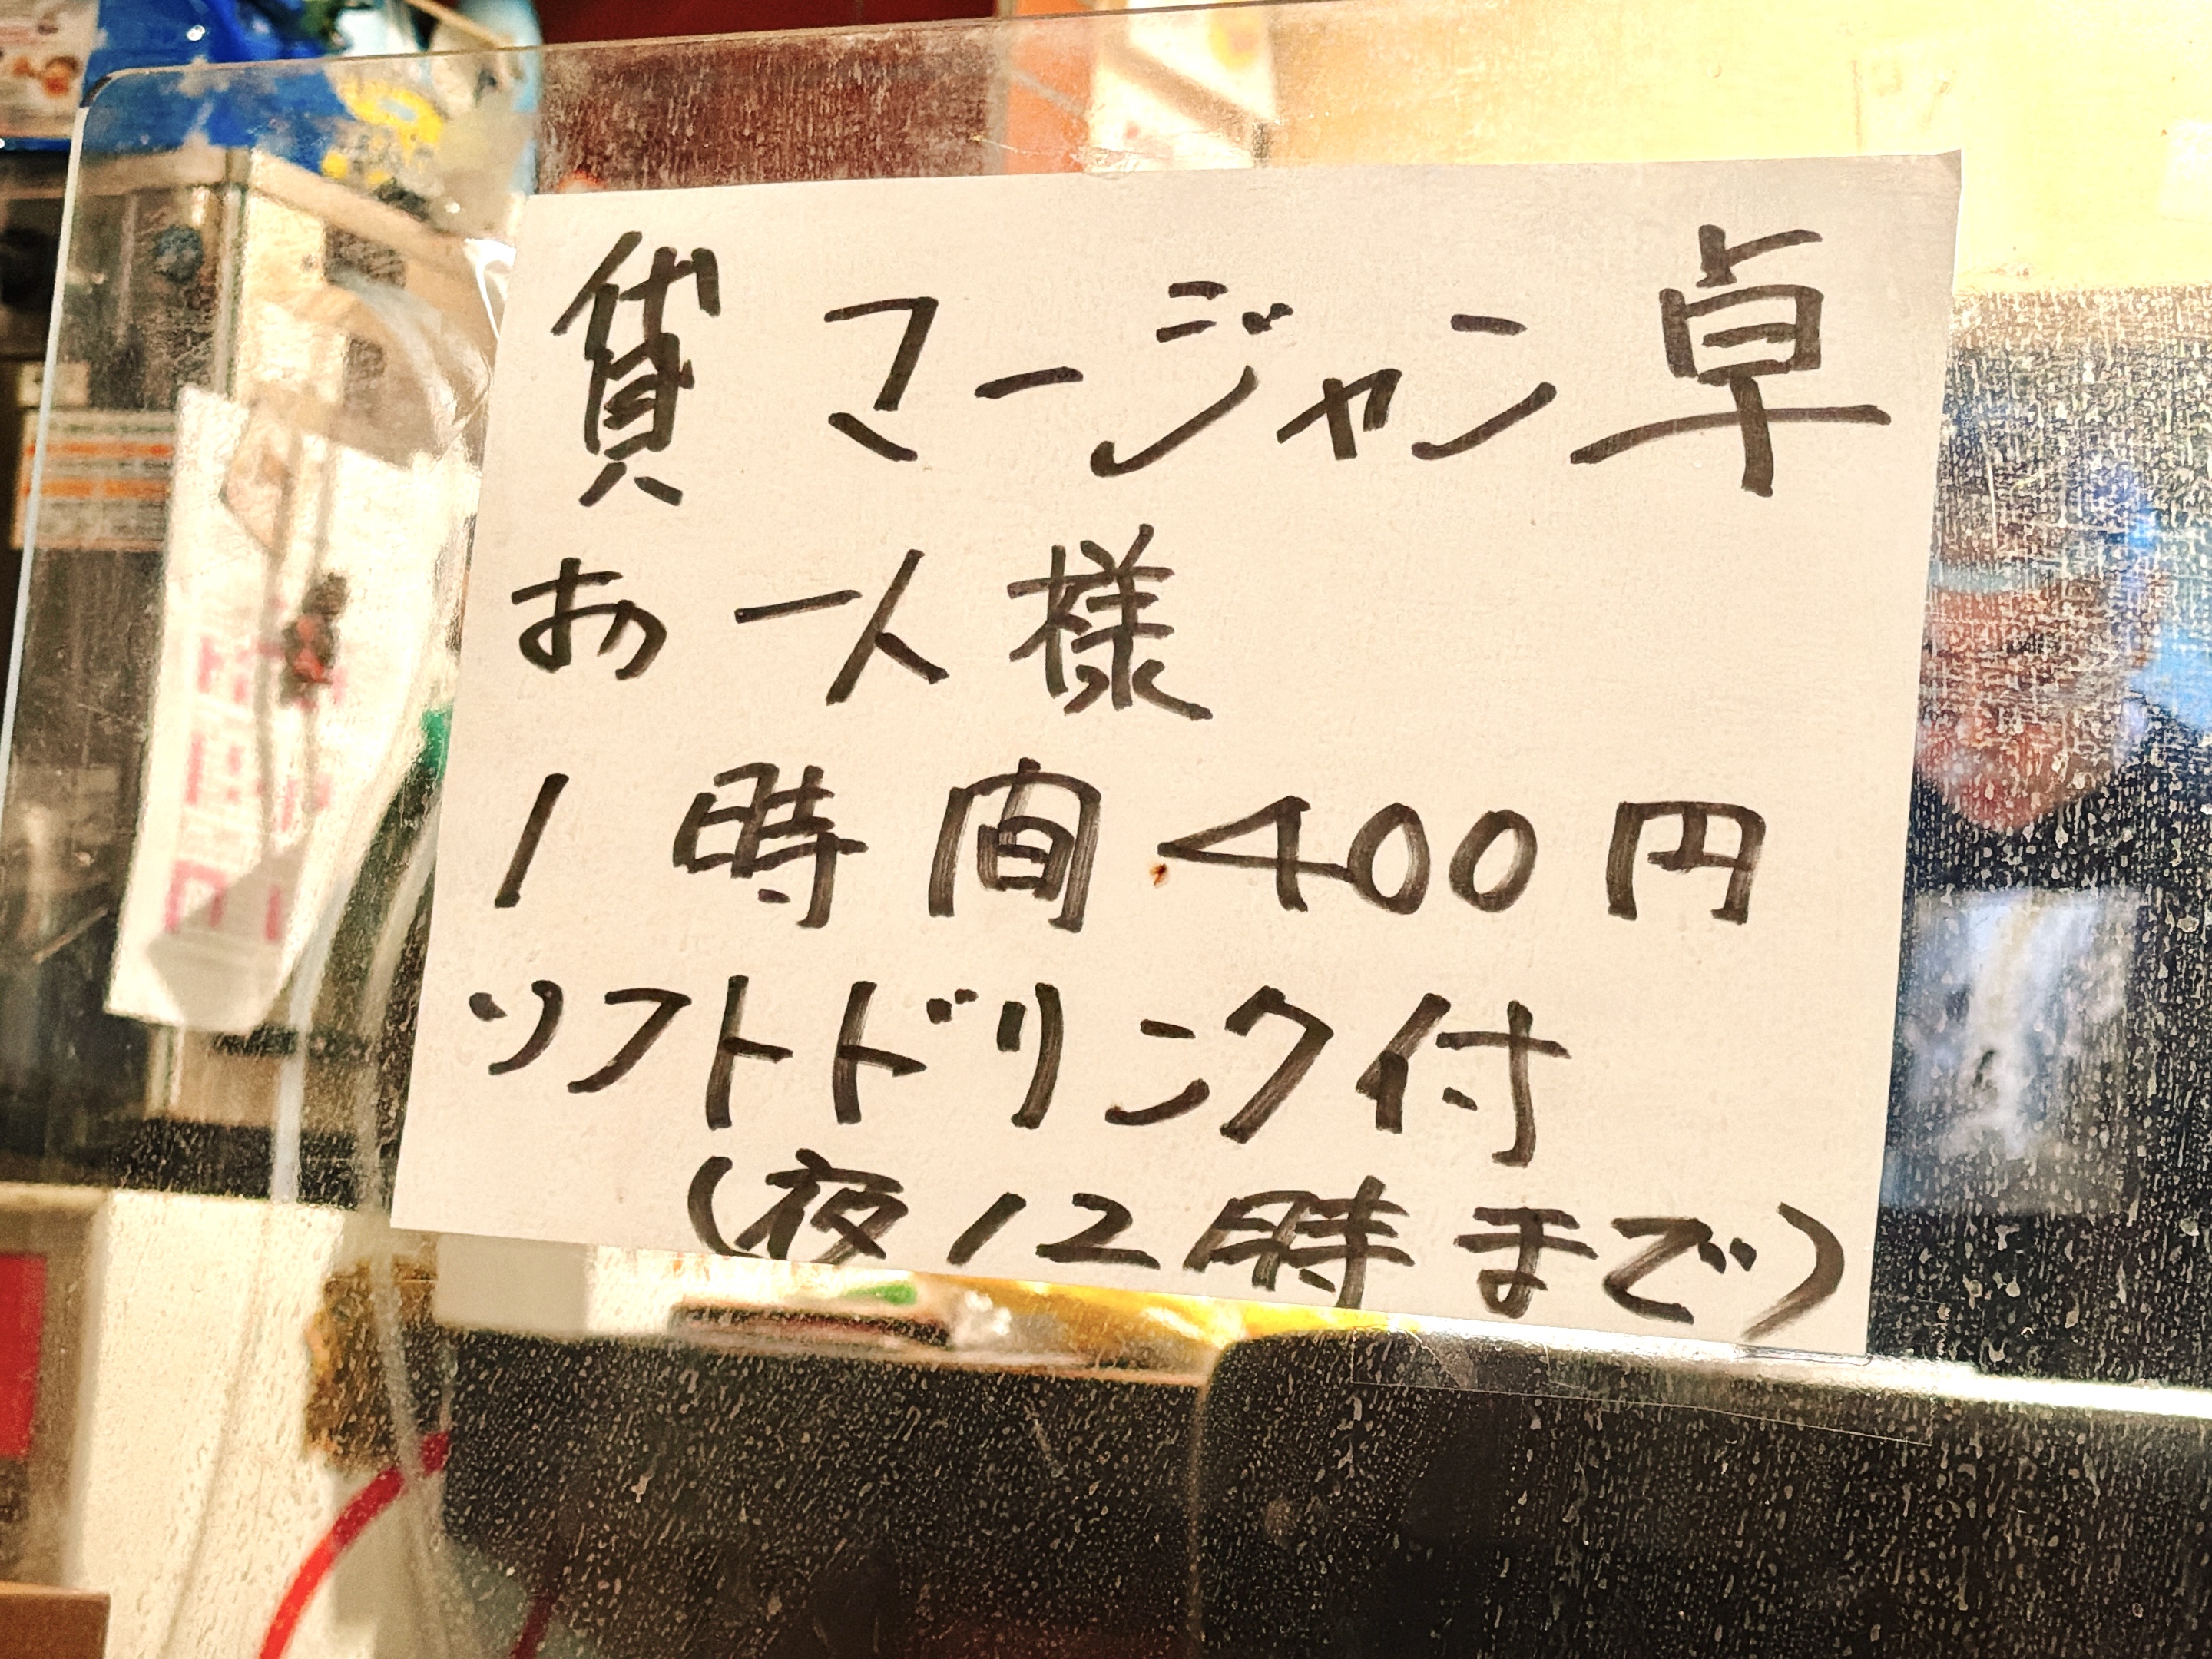 貸マージャン卓
お一人様
1時間400円
ソフトドリンク付
(夜12時まで)